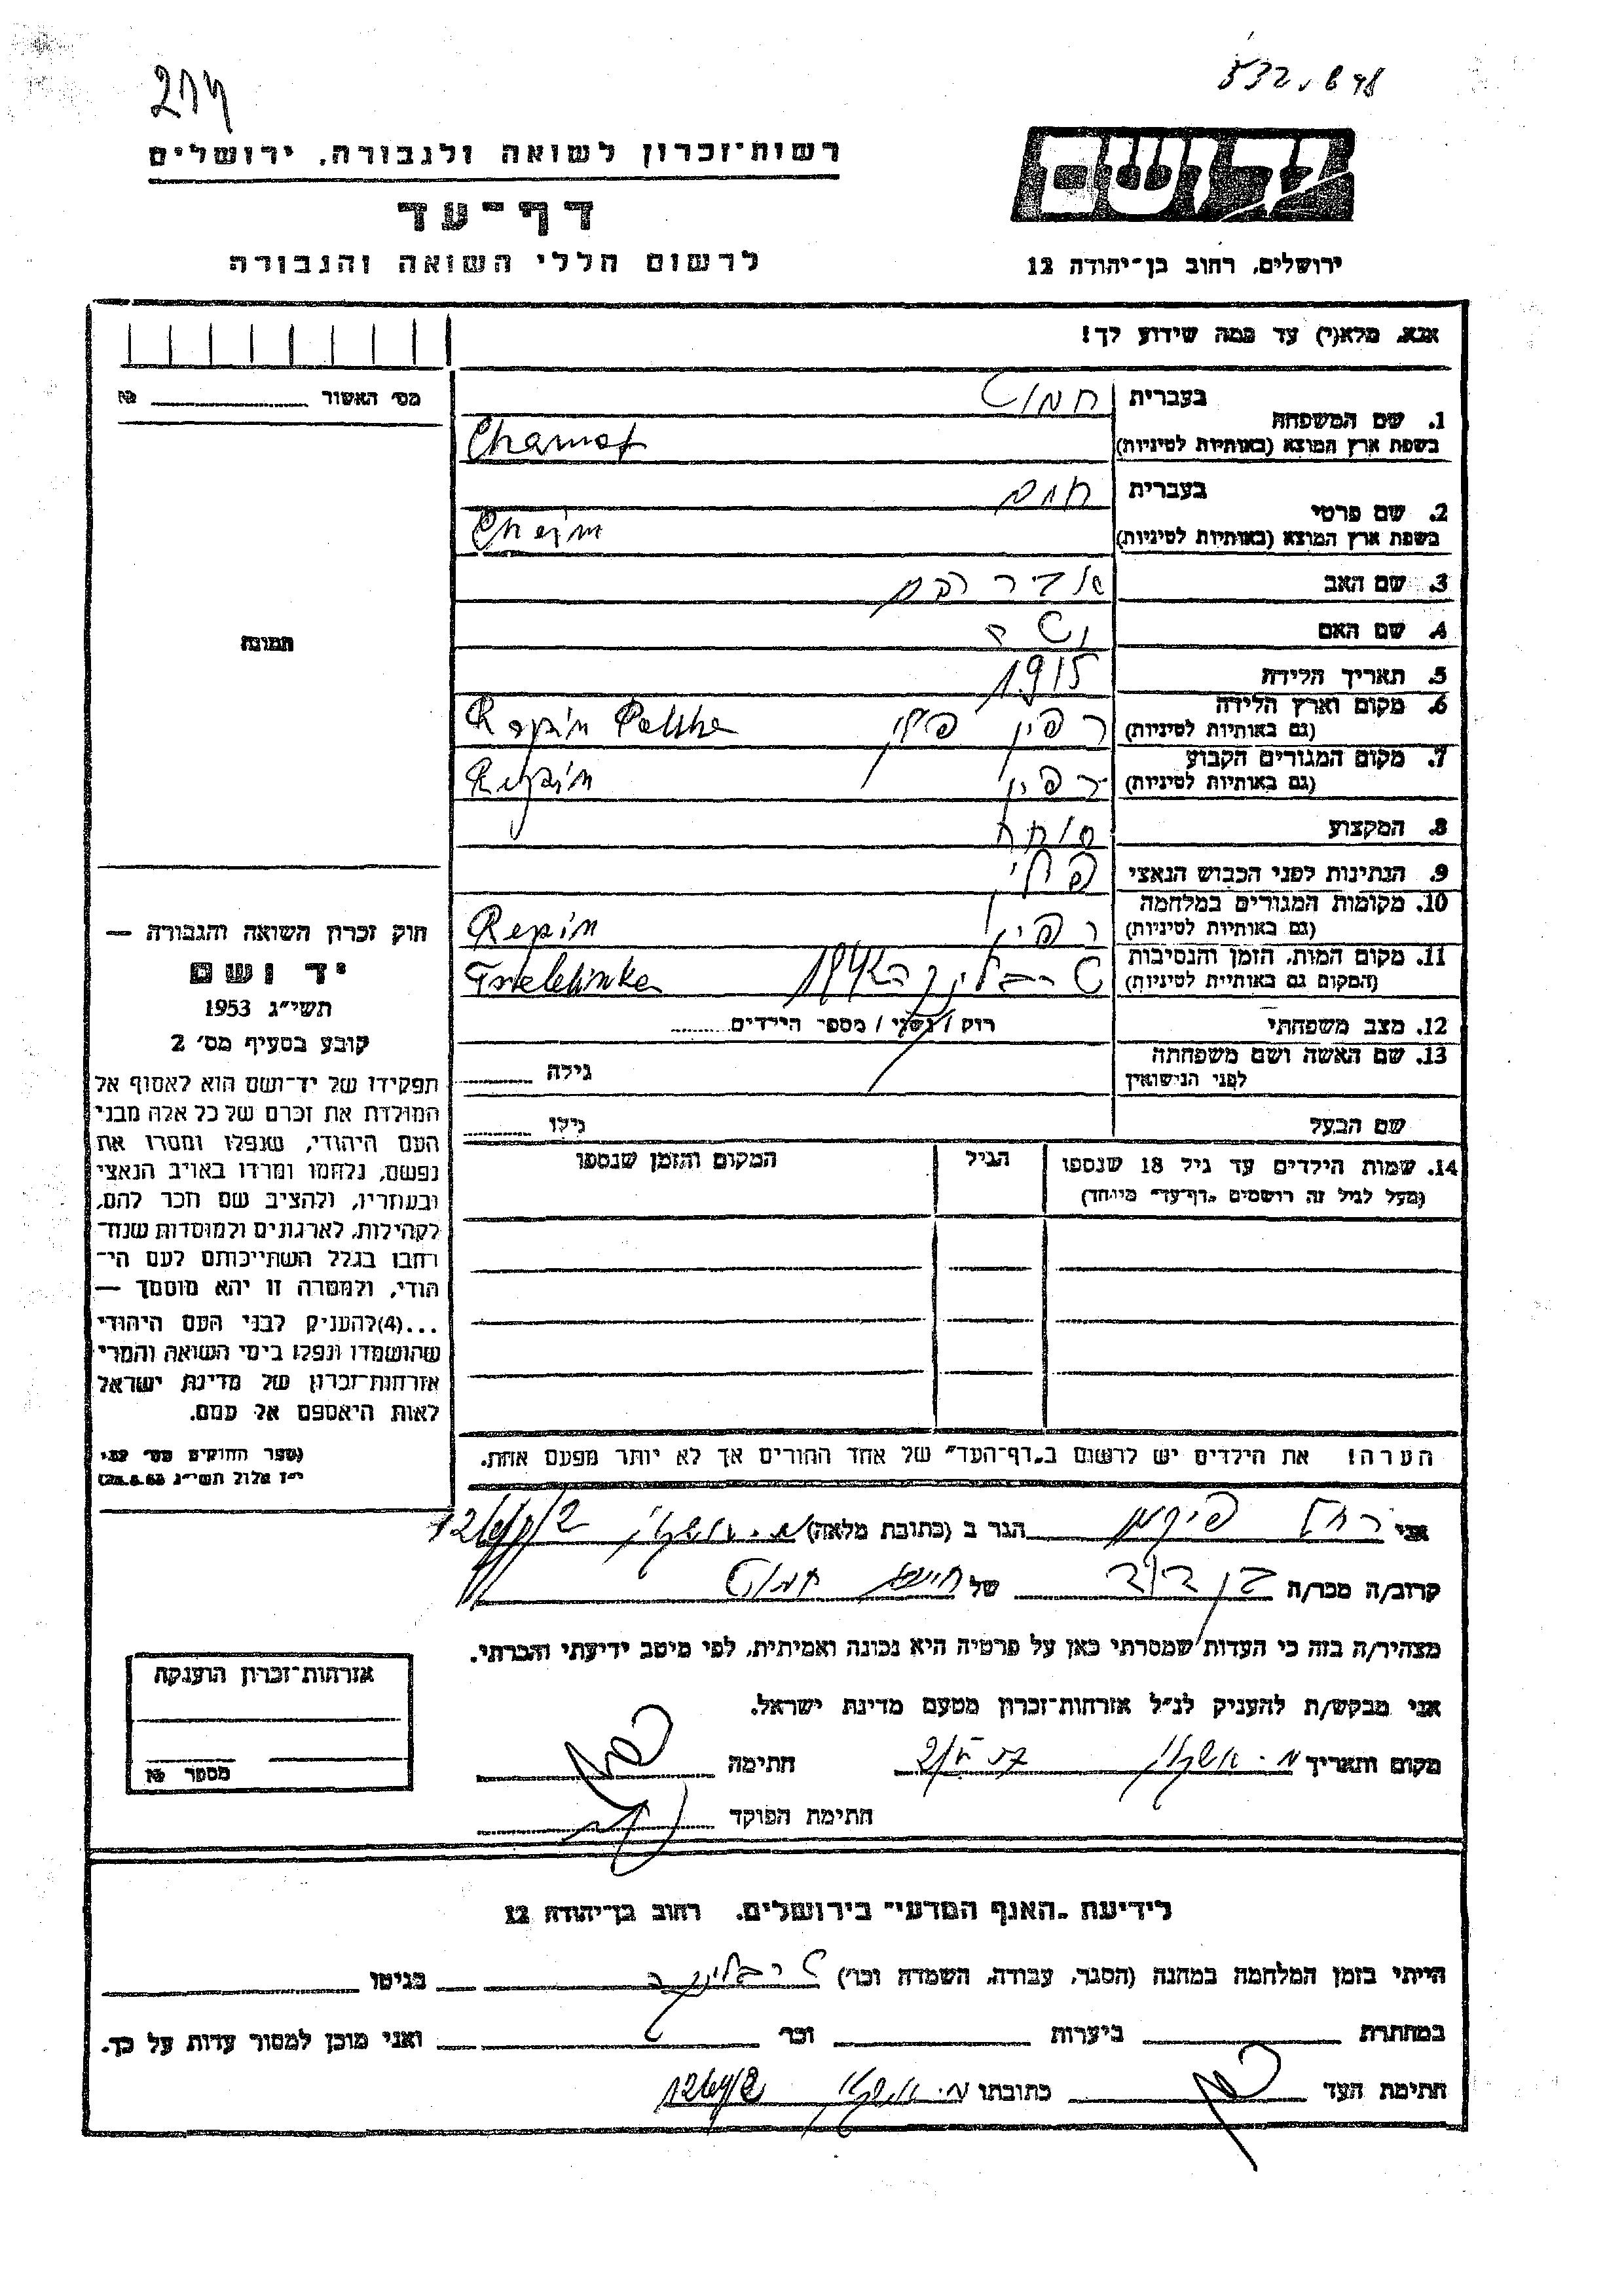 רשות־זכרון לשואה ולגבורה, ירושלים
דף־עד
לרשום חללי השואה והגבורה
יד ושם
ירושלים, רחוב בן־יהודה 12
אנא, מלא(י) עד כמה שידוע לך!
מס׳ האשור № ........
1. שם המשפחה
בעברית חמוט
בשפת ארץ המוצא (באותיות לטיניות) Chamot
2. שם פרטי
בעברית חיים
בשפת ארץ המוצא (באותיות לטיניות) Chaim
3. שם האב
4. שם האם
5. תאריך הלידה 1915
6. מקום וארץ הלידה
(גם באותיות לטיניות) רפין פולין Repin Polska
7. מקום המגורים הקבוע
(גם באותיות לטיניות) רפין Repin
8. המקצוע סוחר
9. הנתינות לפני הכבוש הנאצי פולני
10. מקומות המגורים במלחמה
(גם באותיות לטיניות) רפין Repin
11. מקום המות, הזמן והנסיבות
(המקום גם באותיות לטיניות) טרבלינקה 1942 Treblinka
12. מצב משפחתי רוק / נשוי / מספר הילדים ........
13. שם האשה ושם משפחתה
לפני הנישואין גילה ........
שם הבעל גילו ........
14. שמות הילדים עד גיל 18 שנספו הגיל המקום והזמן שנספו
(מעל לגיל זה רושמים „דף־עד״ מיוחד)
הערה! את הילדים יש לרשום ב„דף־העד״ של אחד ההורים אך לא יותר מפעם אחת.
תמונה
חוק זכרון השואה והגבורה —
יד ושם
תשי״ג 1953
קובע בסעיף מס׳ 2
תפקידו של יד־ושם הוא לאסוף אל
המולדת את זכרם של כל אלה מבני
העם היהודי, שנפלו ומסרו את
נפשם, נלחמו ומרדו באויב הנאצי
ובעוזריו, ולהציב שם וזכר להם,
לקהילות, לארגונים ולמוסדות שנח־
רבו בגלל השתייכותם לעם הי־
הודי, ולמטרה זו יהא מוסמך —
...(4) להעניק לבני העם היהודי
שהושמדו ונפלו בימי השואה והמרי
אזרחות־זכרון של מדינת ישראל
לאות היאספם אל עמם.
(ספר החוקים מס׳ 132
י״ז אלול תשי״ג 28.8.53)
אני רחל הגר ב (כתובת מלאה) מ. אשקלון
קרוב/ה מכר/ה בן דוד של חיים חמוט
מצהיר/ה בזה כי העדות שמסרתי כאן על פרטיה היא נכונה ואמיתית, לפי מיטב ידיעתי והכרתי.
אני מבקש/ת להעניק לנ״ל אזרחות־זכרון מטעם מדינת ישראל.
מקום ותאריך מ. אשקלון חתימה
חתימת הפוקד
אזרחות־זכרון הוענקה
מספר №
לידיעת „האגף המדעי״ בירושלים, רחוב בן־יהודה 12
הייתי בזמן המלחמה במחנה (הסגר, עבודה, השמדה וכו׳) טרבלינקה בגיטו
במחתרת ביערות וכו׳ ואני מוכן למסור עדות על כך.
חתימת העד כתובתו מ. אשקלון